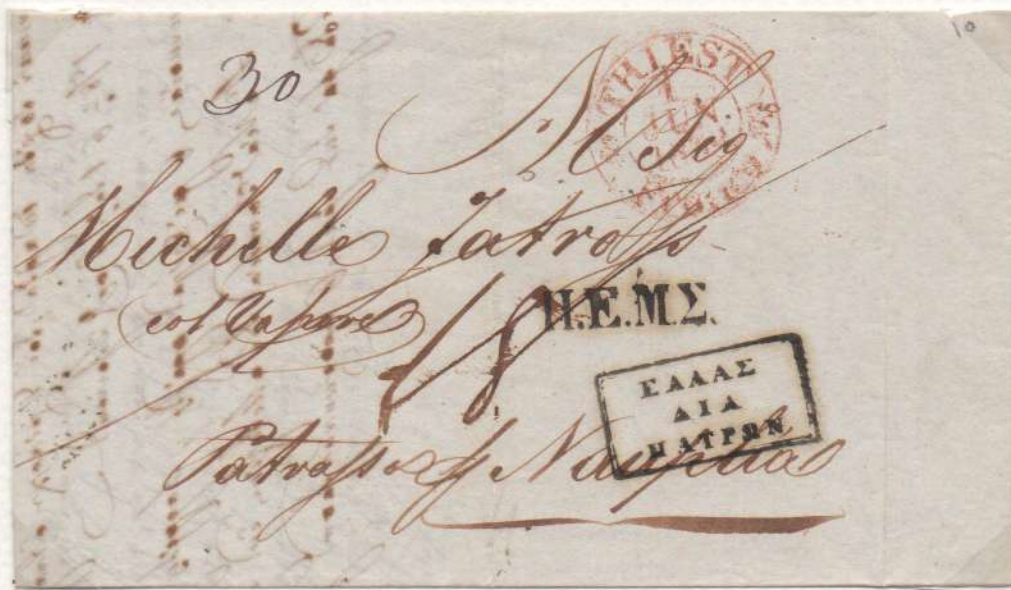 10
30
TRIEST
1
JUN
Al Sig
Michelle Jatrosss
col Vapore
18
Π.Ε.Μ.Σ.
ΕΛΛΑΣ
ΔΙΑ
ΠΑΤΡΩΝ
Patrasso Nauplia